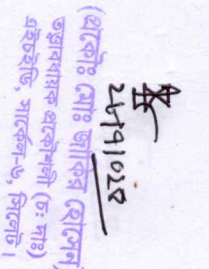 (প্রকৌঃ মোঃ জাকির হোসেন)
তত্ত্বাবধায়ক প্রকৌশলী (চঃ দাঃ)
এইচইডি, সার্কেল-৬, সিলেট।